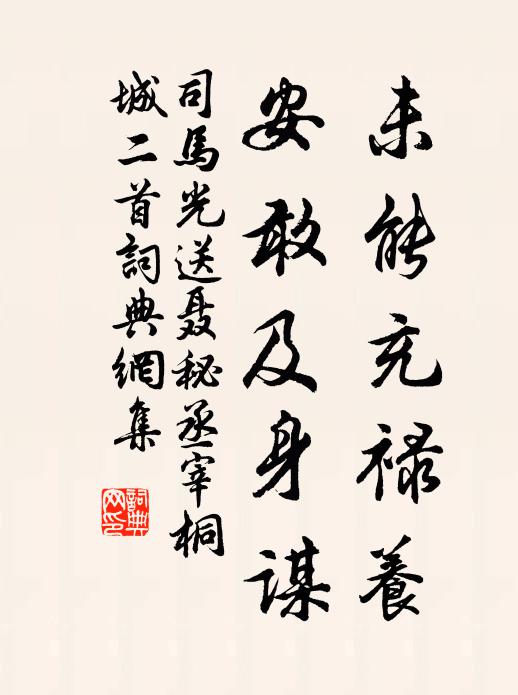 未能充禄養
安敢及身謀
司馬光送聂秘丞宰桐
城二首詞典網集
詞典
网印